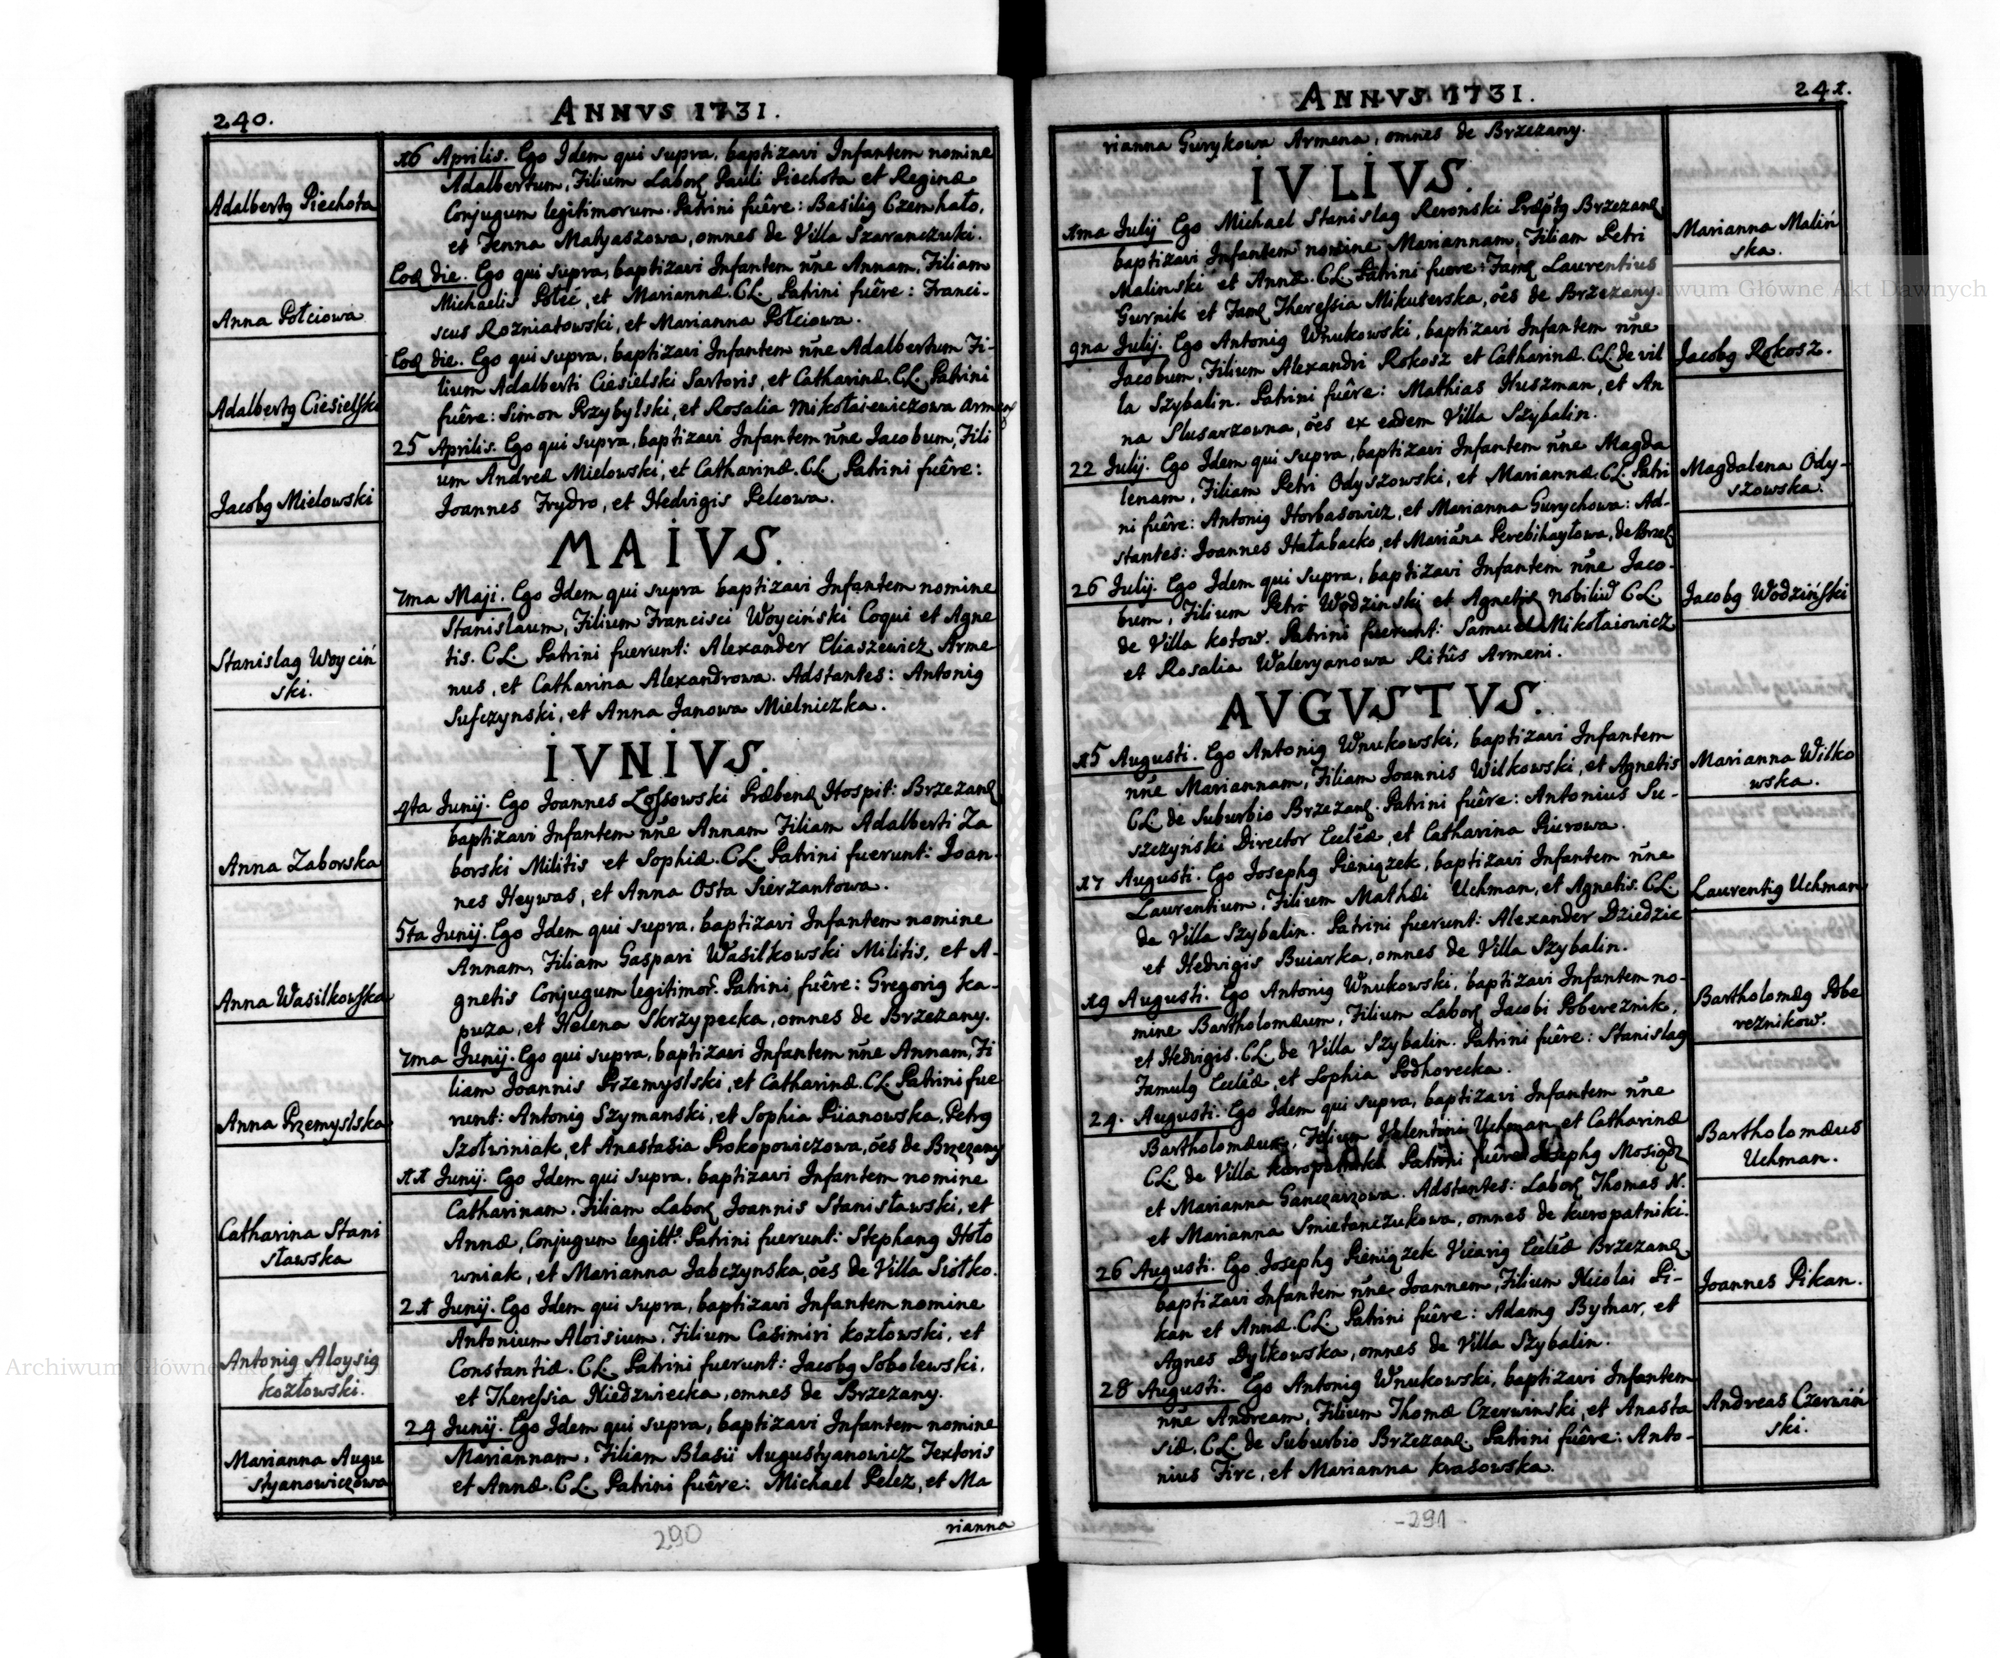 240.
ANNVS 1731.
Adalbertꝯ Piechota
Anna Połciowa
Adalbertꝯ Ciesielski
Jacobꝯ Mielowski
Stanislaꝯ Woyciń
ski.
Anna Zaborska
Anna Wasilkowska
Anna Przemyslska
Catharina Stani
sławska
Antoniꝯ Aloysiꝯ
kozłowski.
Marianna Augu
styanowiczowa
16 Aprilis. Ego Idem qui supra, baptizavi Infantem nomine
Adalbertum, Filium Laborꝭ Pauli Piechota et Reginæ
Conjugum legitimorum. Patrini fuêre: Basiliꝯ Czemhało,
et Jenna Matyaszowa, omnes de Villa Szaranczuki.
Eoꝺ die. Ego qui supra, baptizavi Infantem nn̄e Annam, Filiam
Michaelis Połeć, et Mariannæ. CL. Patrini fuêre: Franci-
scus Rozniatowski, et Marianna Połciowa.
Eoꝺ die. Ego qui supra, baptizavi Infantem nn̄e Adalbertum Fi-
lium Adalberti Ciesielski Sartoris, et Catharinæ. CL. Patrini
fuêre: Simon Przybylski, et Rosalia Mikołaiewiczowa Armeꝭ
25 Aprilis. Ego qui supra, baptizavi Infantem nn̄e Jacobum, Fili
um Andreæ Mielowski, et Catharinæ. CL. Patrini fuêre:
Joannes Frydro, et Hedvigis Pelcowa.
MAIVS.
7ma Maji. Ego Idem qui supra baptizavi Infantem nomine
Stanislaum, Filium Francisci Woyciński Coqui et Agne
tis. CL. Patrini fuerunt: Alexander Eliaszewicz Arme
nus, et Catharina Alexandrowa. Adstantes: Antoniꝯ
Sufczynski, et Anna Janowa Mielniczka.
IVNIVS.
4ta Junij. Ego Joannes Lossowski Præbenꝺ Hospit: Brzezanꝭ
baptizavi Infantem nn̄e Annam Filiam Adalberti Za
borski Militis et Sophiæ. CL. Patrini fuerunt: Joan-
nes Heywas, et Anna Osta Sierzantowa.
5ta Junij. Ego Idem qui supra, baptizavi Infantem nomine
Annam, Filiam Gaspari Wasilkowski Militis, et A-
gnetis Conjugum legitimor̃. Patrini fuêre: Gregoriꝯ Ka-
puza, et Helena Skrzypecka, omnes de Brzezany.
7ma Junij. Ego qui supra, baptizavi Infantem nn̄e Annam, Fi
liam Joannis Przemyslski, et Catharinæ. CL. Patrini fue
runt: Antoniꝯ Szymanski, et Sophia Piianowska, Petrꝯ
Szołwiniak, et Anastasia Prokopowiczowa, oẽs de Brzezany
11 Junij. Ego Idem qui supra, baptizavi Infantem nomine
Catharinam, Filiam Laborꝭ Joannis Stanisławski, et
Annæ, Conjugum legitt̃. Patrini fuerunt: Stephanꝯ Hoło
wniak, et Marianna Jabczynska, oẽs de Villa Siołko.
21 Junij. Ego Idem qui supra, baptizavi Infantem nomine
Antonium Aloisium, Filium Casimiri kozłowski, et
Constantiæ. CL. Patrini fuerunt: Jacobꝯ Sobolewski,
et Theressia Niedzwiecka, omnes de Brzezany.
24 Junij. Ego Idem qui supra, baptizavi Infantem nomine
Mariannam, Filiam Blasii Augustyanowicz Textoris
et Annæ. CL. Patrini fuêre: Michael Pelez, et Ma
rianna
290
ANNVS 1731.
241.
rianna Gurykowa Armena, omnes de Brzezany.
IVLIVS.
1ma Julij Ego Michael Stanislaꝯ Reronski Præptꝯ Brzezanꝭ
baptizavi Infantem nomine Mariannam, Filiam Petri
Malinski et Annæ. CL. Patrini fuere: Famꝭ Laurentius
Gurnik et Famꝭ Theressia Mikuterska, oẽs de Brzezany.
9na Julij. Ego Antoniꝯ Wnukowski, baptizavi Infantem nn̄e
Jacobum, Filium Alexandri Rokosz et Catharinæ. CL. de vil
la Szybalin. Patrini fuêre: Mathias Huszman, et An
na Slusarzowna, oẽs ex eadem Villa Szybalin.
22 Julij. Ego Idem qui supra, baptizavi Infantem nn̄e Magda
lenam, Filiam Petri Odyszowski, et Mariannæ. CL. Patri
ni fuêre: Antoniꝯ Horbasowicz, et Marianna Gurychowa: Ad-
stantes: Joannes Hałabacko, et Mariãna Perebihayłowa, de Brzeꝭ
26 Julij. Ego Idem qui supra, baptizavi Infantem nn̄e Jaco-
bum, Filium Petri Wodzinski et Agnetis nobiliũ CL.
de Villa kotow. Patrini fuerunt: Samuel Mikołaiowicz
et Rosalia Waleryanowa Ritûs Armeni.
AVGVSTVS.
15 Augusti. Ego Antoniꝯ Wnukowski, baptizavi Infantem
nn̄e Mariannam, Filiam Joannis Wilkowski, et Agnetis
CL. de Suburbio Brzezanꝭ. Patrini fuêre: Antonius Su-
szczyński Director Eccľæ, et Catharina Piurowa.
17 Augusti. Ego Josephꝯ Pieniązek, baptizavi Infantem nn̄e
Laurentium, Filium Mathæi Uchman, et Agnetis. CL.
de Villa Szybalin. Patrini fuerunt: Alexander Dziedzic
et Hedvigis Buiarka, omnes de Villa Szybalin.
19 Augusti. Ego Antoniꝯ Wnukowski, baptizavi Infantem no-
mine Bartholomæum, Filium Laborꝭ Jacobi Pobereznik,
et Hedvigis. CL. de Villa Szybalin. Patrini fuêre: Stanislaꝯ
Famulꝯ Eccľæ, et Sophia Podhorecka.
24. Augusti. Ego Idem qui supra, baptizavi Infantem nn̄e
Bartholomæum, Filium Valentini Uchman et Catharinæ
CL. de Villa kuropatniki Patrini fuêre Josephꝯ Mosiądz
et Marianna Ganczarzowa. Adstantes: Laborꝭ Thomas N.
et Marianna Smietanczukowa, omnes de kuropatniki.
26 Augusti. Ego Josephꝯ Pieniązek Vicariꝯ Eccľæ Brzezanꝭ
baptizavi Infantem nn̄e Joannem, Filium Nicolai Pi-
kan et Annæ. CL. Patrini fuêre: Adamꝯ Bytnar, et
Agnes Dytkowska, omnes de Villa Szybalin.
28 Augusti. Ego Antoniꝯ Wnukowski, baptizavi Infantem
nn̄e Andream, Filium Thomæ Czerwinski, et Anasta
siæ. CL. de Suburbio Brzezanꝭ. Patrini fuêre: Anto-
nius Firc, et Marianna krasowska.
Marianna Maliń
ska.
Jacobꝯ Rokosz.
Magdalena Ody-
szowska.
Jacobꝯ Wodzińſki
Marianna Wilko
wska.
Laurentiꝯ Uchman
Bartholomæꝯ Pobe
reznikow.
Bartholomæus
Uchman.
Joannes Pikan.
Andreas Czerwiń
ski.
-291
Archiwum Główne Akt Dawnych
Archiwum Główne Akt Dawnych